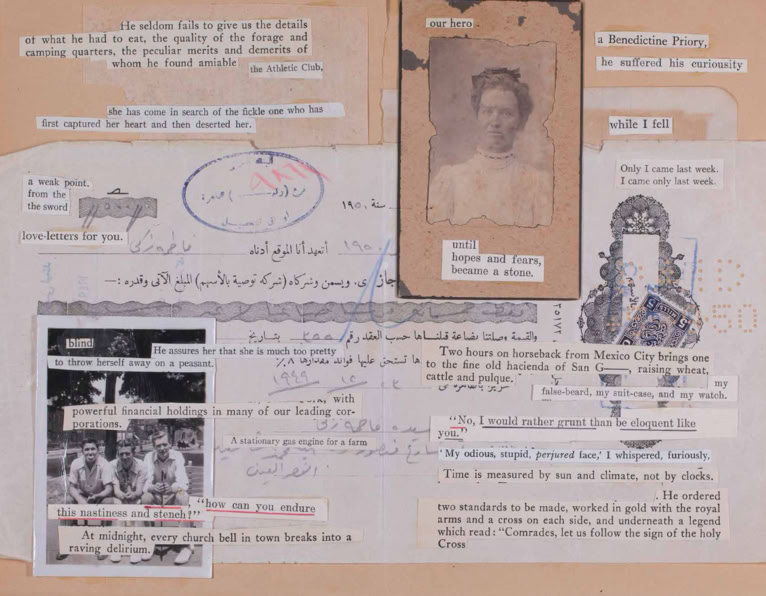 He seldom fails to give us the details
of what he had to eat, the quality of the forage and
camping quarters, the peculiar merits and demerits of
whom he found amiable
the Athletic Club.
she has come in search of the fickle one who has
first captured her heart and then deserted her.
our hero
a Benedictine Priory,
he suffered his curiosity
while I fell
Only I came last week.
I came only last week.
a weak point.
from the
the sword
love-letters for you.
سنة ١٩٥٠
أتعهد أنا الموقع أدناه
ويسمن وشركاه (شركة توصية بالأسهم) المبلغ الآتى وقدره :—
والقيمة وصلتنا بضاعة قبلناها حسب العقد رقم
بتاريخ
تستحق عليها فوائد مقدارها ٨٪
until
hopes and fears,
became a stone.
blind
He assures her that she is much too pretty
to throw herself away on a peasant.
with
powerful financial holdings in many of our leading cor-
porations.
A stationary gas engine for a farm
"how can you endure
this nastiness and stench?"
At midnight, every church bell in town breaks into a
raving delirium.
Two hours on horseback from Mexico City brings one
to the fine old hacienda of San G——, raising wheat,
cattle and pulque.
my
false-beard, my suit-case, and my watch.
"No, I would rather grunt than be eloquent like
you."
'My odious, stupid, perjured face,' I whispered, furiously,
Time is measured by sun and climate, not by clocks.
. He ordered
two standards to be made, worked in gold with the royal
arms and a cross on each side, and underneath a legend
which read: "Comrades, let us follow the sign of the holy
Cross